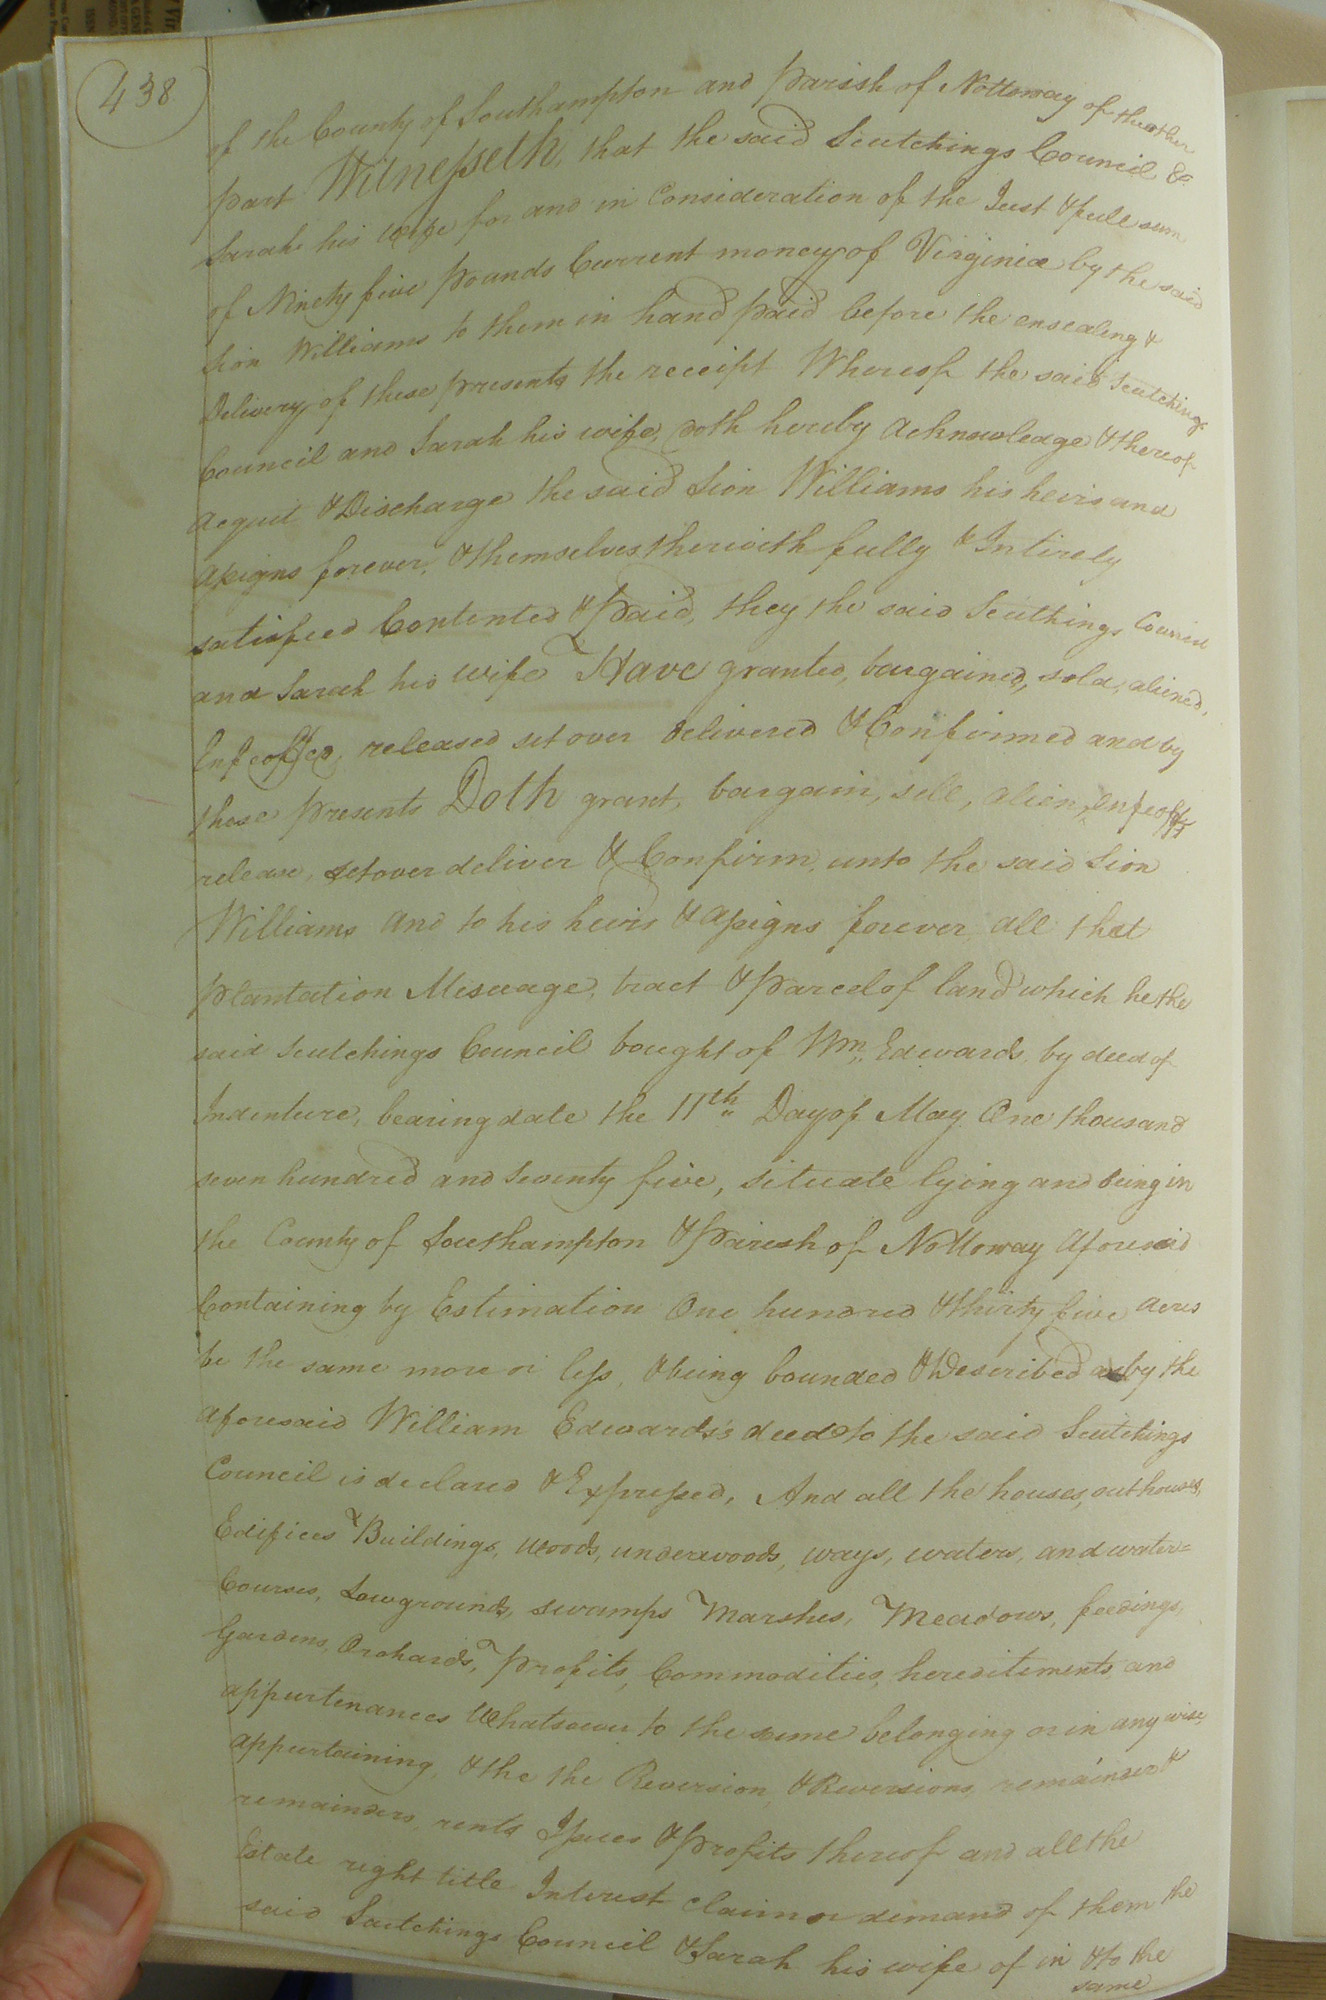 438
of the County of Southampton and Parish of Nottoway of the other
part Witnesseth, that the said Scutchings Council &
Sarah his wife for and in Consideration of the Just & full sum
of Ninety five pounds Current money of Virginia by the said
Sion Williams to them in hand paid before the ensealing &
Delivery of these presents the receipt Whereof the said Scutchings
Council and Sarah his wife, doth hereby Acknowledge & thereof
Acquit & Discharge the said Sion Williams his heirs and
Assigns forever, & themselves therewith fully & Intirely
satisfied Contented & paid, they the said Scuthings Council
and Sarah his wife Have granted, bargained, sold, aliened,
Enfeoffed, released set over delivered & Confirmed and by
these presents Doth grant, bargain, sell, alien, Enfeoff
release, set over deliver & Confirm, unto the said Sion
Williams And to his heirs & Assigns forever all that
plantation Mesuage, tract & parcel of land which he the
said Scutchings Council bought of Wm. Edwards, by deed of
Indenture, bearing date the 11th Day of May One thousand
seven hundred and Seventy five, situate lying and being in
the County of Southampton & Parish of Nottoway Aforesaid
Containing by Estimation One hundred & thirty five Acres
be the same more or less, & being bounded & Described as by the
Aforesaid William Edwards's deed to the said Scutchings
Council is declared & Expressed, And all the houses, outhouses,
Edifices & Buildings, Woods, underwoods, ways, waters, and water=
Courses, Lowgrounds, swamps Marshes, Meadows, feedings,
Gardens, Orchards, profits, Commodities, hereditements, and
appurtenances Whatsoever to the same belonging or in any wise,
appurtaining, & the the Reversion, & Reversions, remainder &
remainders, rents Issues & profits thereof and all the
Estate right title Interest claim or demand of them the
said Scutchings Council & Sarah his wife of in & to the
same